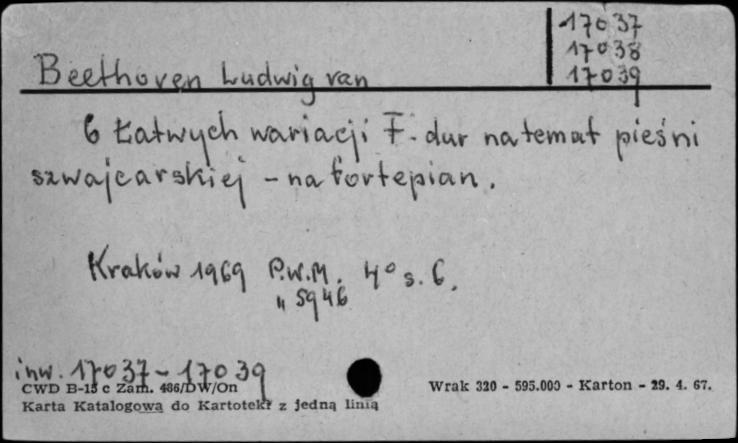 17037
17038
17039
Beethoven Ludwig van
6 Łatwych wariacji F-dur na temat pieśni
szwajcarskiej - na fortepian.
Kraków 1969 P.W.M. 4° s. 6.
" 5946
inw. 17037-17039
CWD B-15 c Zam. 486/DW/On
Wrak 320 - 595.000 - Karton - 29. 4. 67.
Karta Katalogowa do Kartoteki z jedną linią